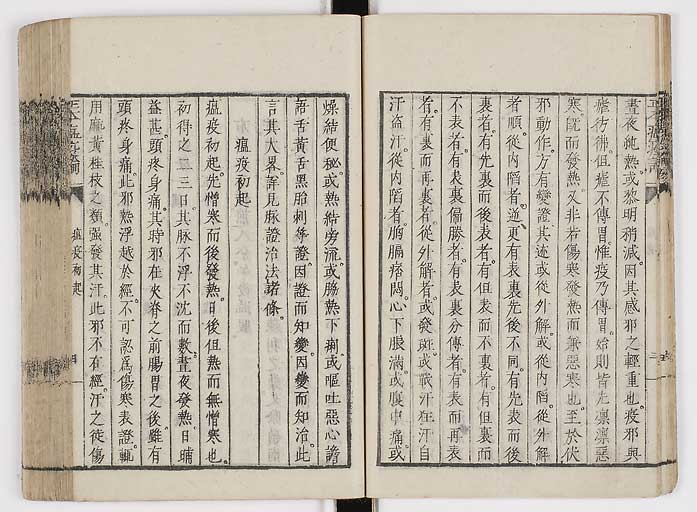 晝夜純熱或黎明稍減因其感邪之輕重也疫邪與
瘧彷彿但瘧不傳胃惟疫乃傳胃始則皆先凛凛惡
寒既而發熱又非若傷寒發熱而兼惡寒也至於伏
邪動作方有變證其迹或從外解或從内陷從外解
者順從内陷者逆更有表裏先後不同有先表而後
裏者有先裏而後表者有但表而不裏者有但裏而
不表者有表裏偏勝者有表裏分傳者有表而再表
者有裏而再裏者從外解者或發斑或戰汗狂汗自
汗盗汗從内陷者胸膈痞悶心下脹滿或腹中痛或
燥結便秘或熱結旁流或腸熱下痢或嘔吐惡心譫
語舌黄舌黑胎刺等證因證而知變因變而知治此
言其大畧詳見脉證治法諸條
瘟疫初起
瘟疫初起先憎寒而後發熱日後但熱而無憎寒也
初得之二三日其脉不浮不沈而數晝夜發熱日晡
益甚頭疼身痛其時邪在夾脊之前腸胃之後雖有
頭疼身痛此邪熱浮越於經不可認為傷寒表證輒
用麻黄桂枝之類强發其汗此邪不在經汗之徒傷
瘟疫初起